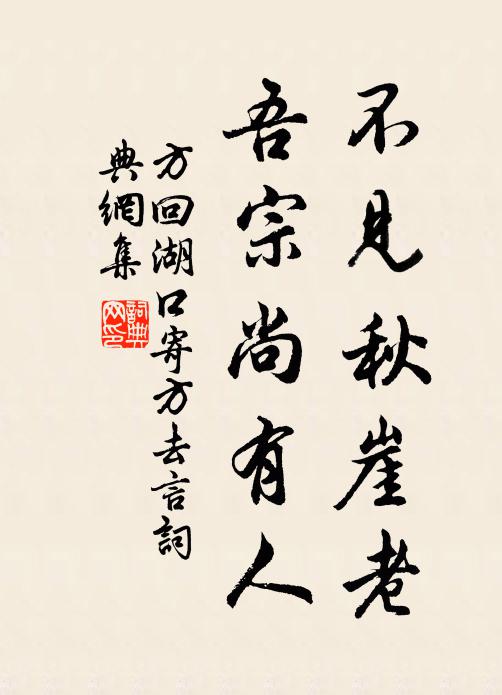 不見秋崖老
吾宗尚有人
方回湖口寄方去言詞
典網集
詞典
网印